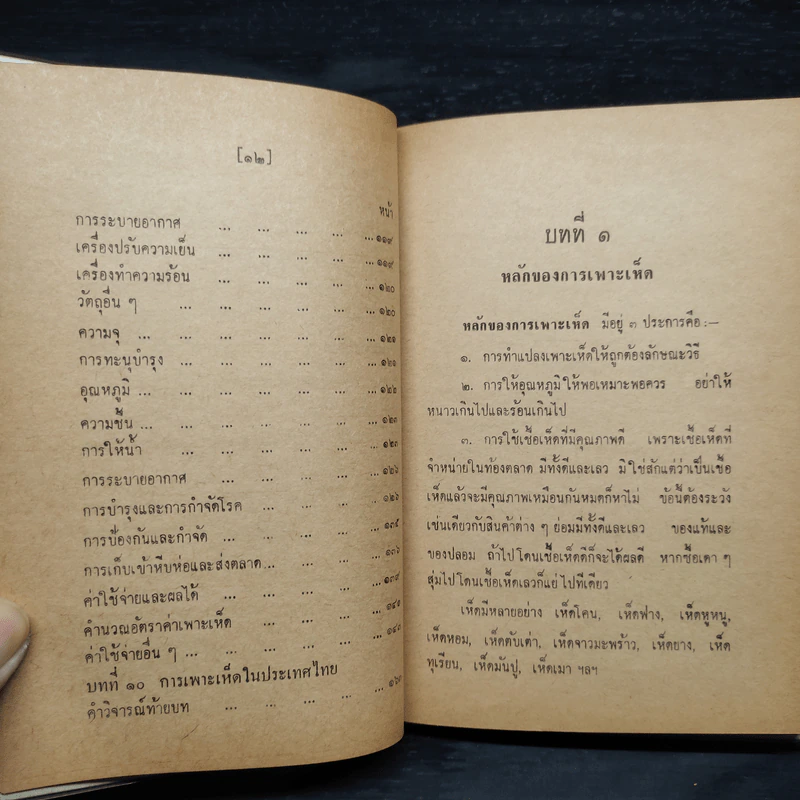 [๑๒]
หน้า
การระบายอากาศ ... ... ... ... ... ๑๑๙
เครื่องปรับความเย็น ... ... ... ... ... ๑๑๙
เครื่องทำความร้อน ... ... ... ... ... ๑๒๐
วัตถุอื่น ๆ ... ... ... ... ... ๑๒๐
ความจุ ... ... ... ... ... ... ๑๒๑
การทะนุบำรุง ... ... ... ... ... ๑๒๑
อุณหภูมิ ... ... ... ... ... ... ๑๒๒
ความชื้น ... ... ... ... ... ... ๑๒๓
การให้น้ำ ... ... ... ... ... ๑๒๓
การระบายอากาศ ... ... ... ... ๑๒๖
การบำรุงและการกำจัดโรค ... ... ... ... ๑๒๖
การป้องกันและกำจัด ... ... ... ... ๑๓๕
การเก็บเข้าหีบห่อและส่งตลาด... ... ... ... ๑๓๖
ค่าใช้จ่ายและผลได้ ... ... ... ... ๑๓๙
คำนวณอัตราค่าเพาะเห็ด ... ... ... ... ๑๔๑
ค่าใช้จ่ายอื่น ๆ ... ... ... ... ... ๑๔๓
บทที่ ๑๐ การเพาะเห็ดในประเทศไทย
คำวิจารณ์ท้ายบท ... ... ... ... ๑๖๓
บทที่ ๑
หลักของการเพาะเห็ด
หลักของการเพาะเห็ด มีอยู่ ๓ ประการคือ :—
๑. การทำแปลงเพาะเห็ดให้ถูกต้องลักษณะวิธี
๒. การให้อุณหภูมิให้พอเหมาะพอควร อย่าให้
หนาวเกินไปและร้อนเกินไป
๓. การใช้เชื้อเห็ดที่มีคุณภาพดี เพราะเชื้อเห็ดที่
จำหน่ายในท้องตลาด มีทั้งดีและเลว มิใช่สักแต่ว่าเป็นเชื้อ
เห็ดแล้วจะมีคุณภาพเหมือนกันหมดก็หาไม่ ข้อนี้ต้องระวัง
เช่นเดียวกับสินค้าต่าง ๆ ย่อมมีทั้งดีและเลว ของแท้และ
ของปลอม ถ้าไปโดนเชื้อเห็ดดีก็จะได้ผลดี หากซื้อเดา ๆ
สุ่มไปโดนเชื้อเห็ดเลวก็แย่ไปทีเดียว
เห็ดมีหลายอย่าง เห็ดโคน, เห็ดฟาง, เห็ดหูหนู,
เห็ดหอม, เห็ดตับเต่า, เห็ดจาวมะพร้าว, เห็ดยาง, เห็ด
ทุเรียน, เห็ดมันปู, เห็ดเมา ฯลฯ